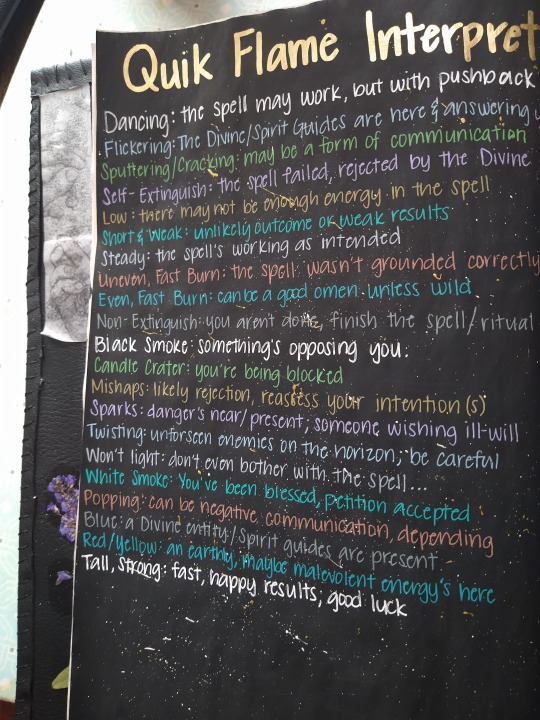 Quik Flame Interpret
Dancing: the spell may work, but with pushback
Flickering: The Divine/Spirit Guides are here & answering
Sputtering/Cracking: may be a form of communication
Self-Extinguish: the spell failed, rejected by the Divine
Low: there may not be enough energy in the spell
Short & Weak: unlikely outcome or weak results
Steady: the spell's working as intended
Uneven, Fast Burn: the spell wasn't grounded correctly
Even, Fast Burn: can be a good omen unless wild
Non-Extinguish: you aren't done, finish the spell/ritual
Black Smoke: something's opposing you.
Candle Crater: you're being blocked
Mishaps: likely rejection, reassess your intention(s)
Sparks: danger's near/present; someone wishing ill-will
Twisting: unforseen enemies on the horizon; be careful
Won't light: don't even bother with the spell...
White Smoke: You've been blessed, petition accepted
Popping: can be negative communication, depending
Blue: a Divine entity/Spirit guides are present
Red/Yellow: an earthly, maybe malevolent energy's here
Tall, Strong: fast, happy results, good luck